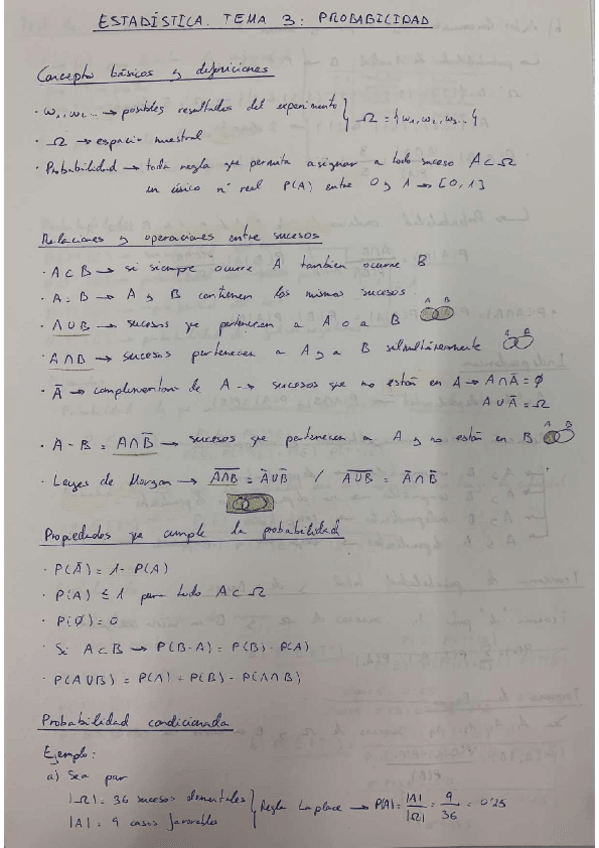 ESTADÍSTICA. TEMA 3: PROBABILIDAD
Conceptos básicos y definiciones
· ω₁, ω₂... → posibles resultados del experimento } Ω = {ω₁, ω₂, ω₃...}
· Ω → espacio muestral
· Probabilidad → toda regla que permita asignar a todo suceso A⊂Ω
un único nº real P(A) entre 0 y 1 → [0,1]
Relaciones y operaciones entre sucesos
· A⊂B → si siempre ocurre A también ocurre B
· A = B → A y B contienen los mismos sucesos
· A∪B → sucesos que pertenecen a A o a B A B
· A∩B → sucesos pertenecen a A y a B simultáneamente A B
· Ā → complementario de A → sucesos que no están en A → A∩Ā = ∅
A∪Ā = Ω
· A - B = A∩B̄ → sucesos que pertenecen a A y no están en B A B
· Leyes de Morgan → \overline{A∩B} = Ā∪B̄ / \overline{A∪B} = Ā∩B̄
Propiedades que cumple la probabilidad
· P(Ā) = 1 - P(A)
· P(A) ≤ 1 para todo A⊂Ω
· P(∅) = 0
· Si A⊂B → P(B-A) = P(B) - P(A)
· P(A∪B) = P(A) + P(B) - P(A∩B)
Probabilidad condicionada
Ejemplo:
a) Sea par
|Ω| = 36 sucesos elementales } Regla Laplace → P(A) = |A|/|Ω| = 9/36 = 0'25
|A| = 9 casos favorables